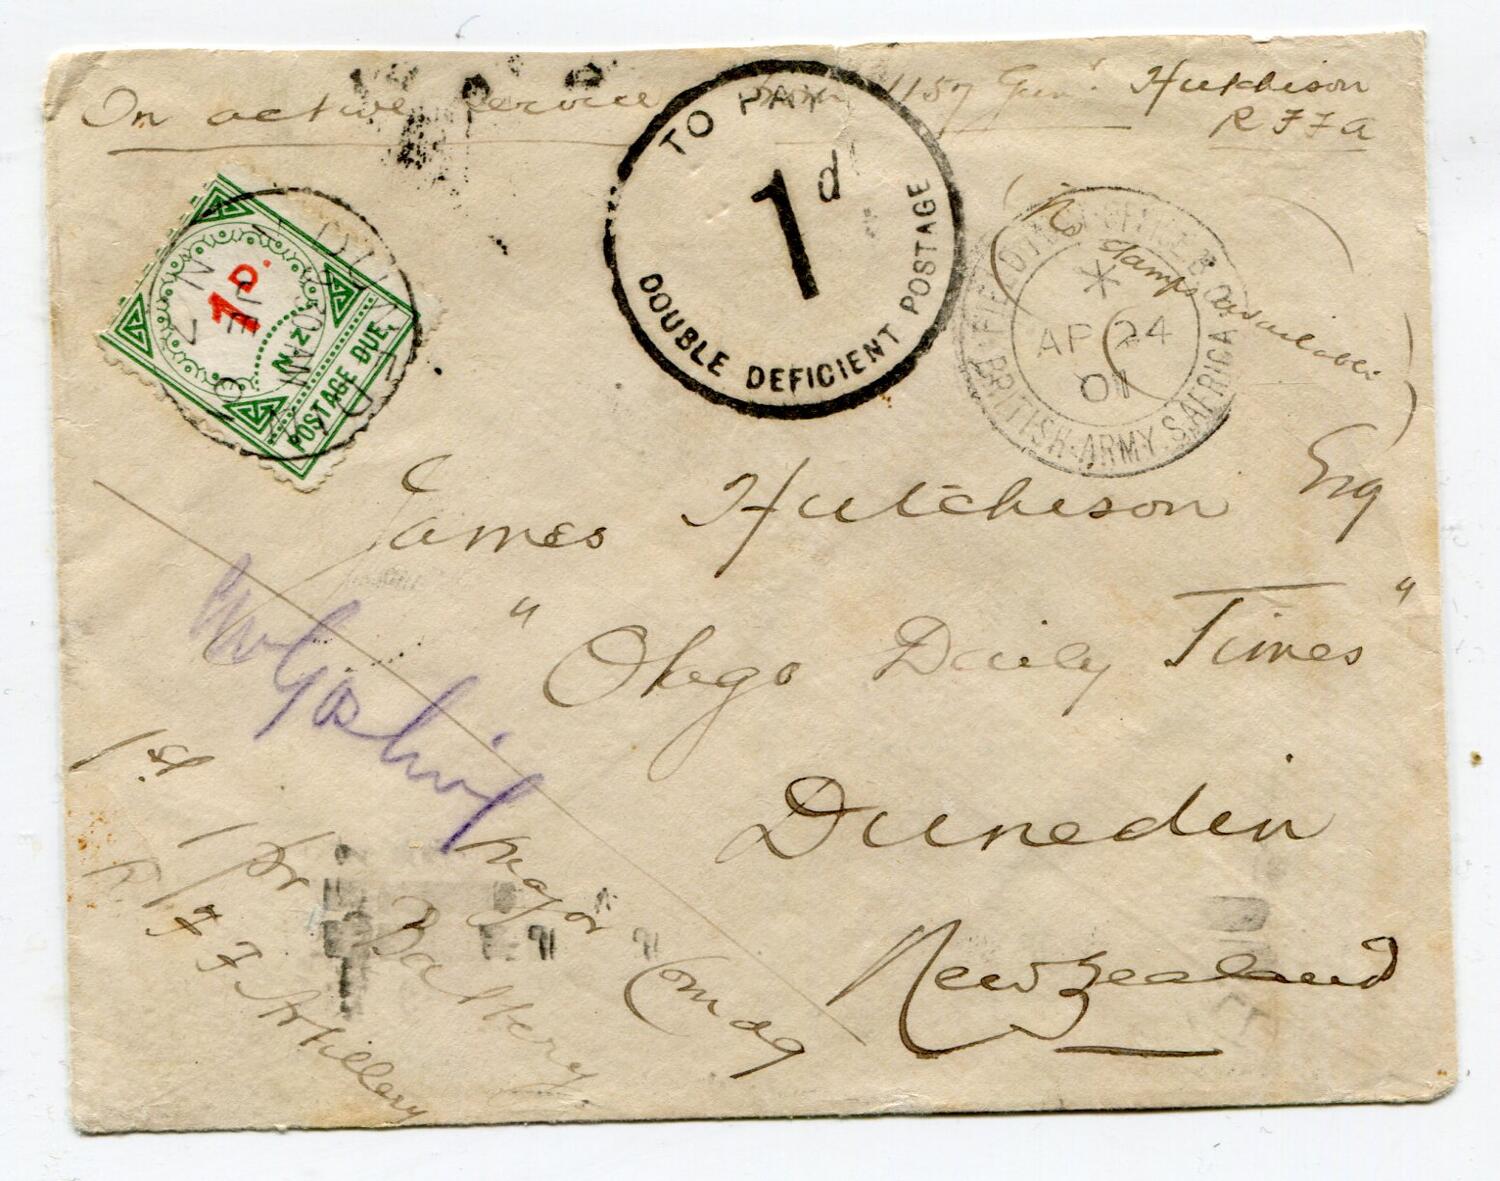 On active service from 1157 Gunr. Hutchison
R F F A
(No stamps available)
TO PAY
1d
DOUBLE DEFICIENT POSTAGE
FIELD POST OFFICE
AP 24
01
BRITISH ARMY. S. AFRICA
DUNEDIN
JE
1D.
N.Z.
POSTAGE DUE.
James Hutchison Esq
"Otago Daily Times"
Dunedin
New Zealand
Major Comdg
1st Battery
R F F Artillery